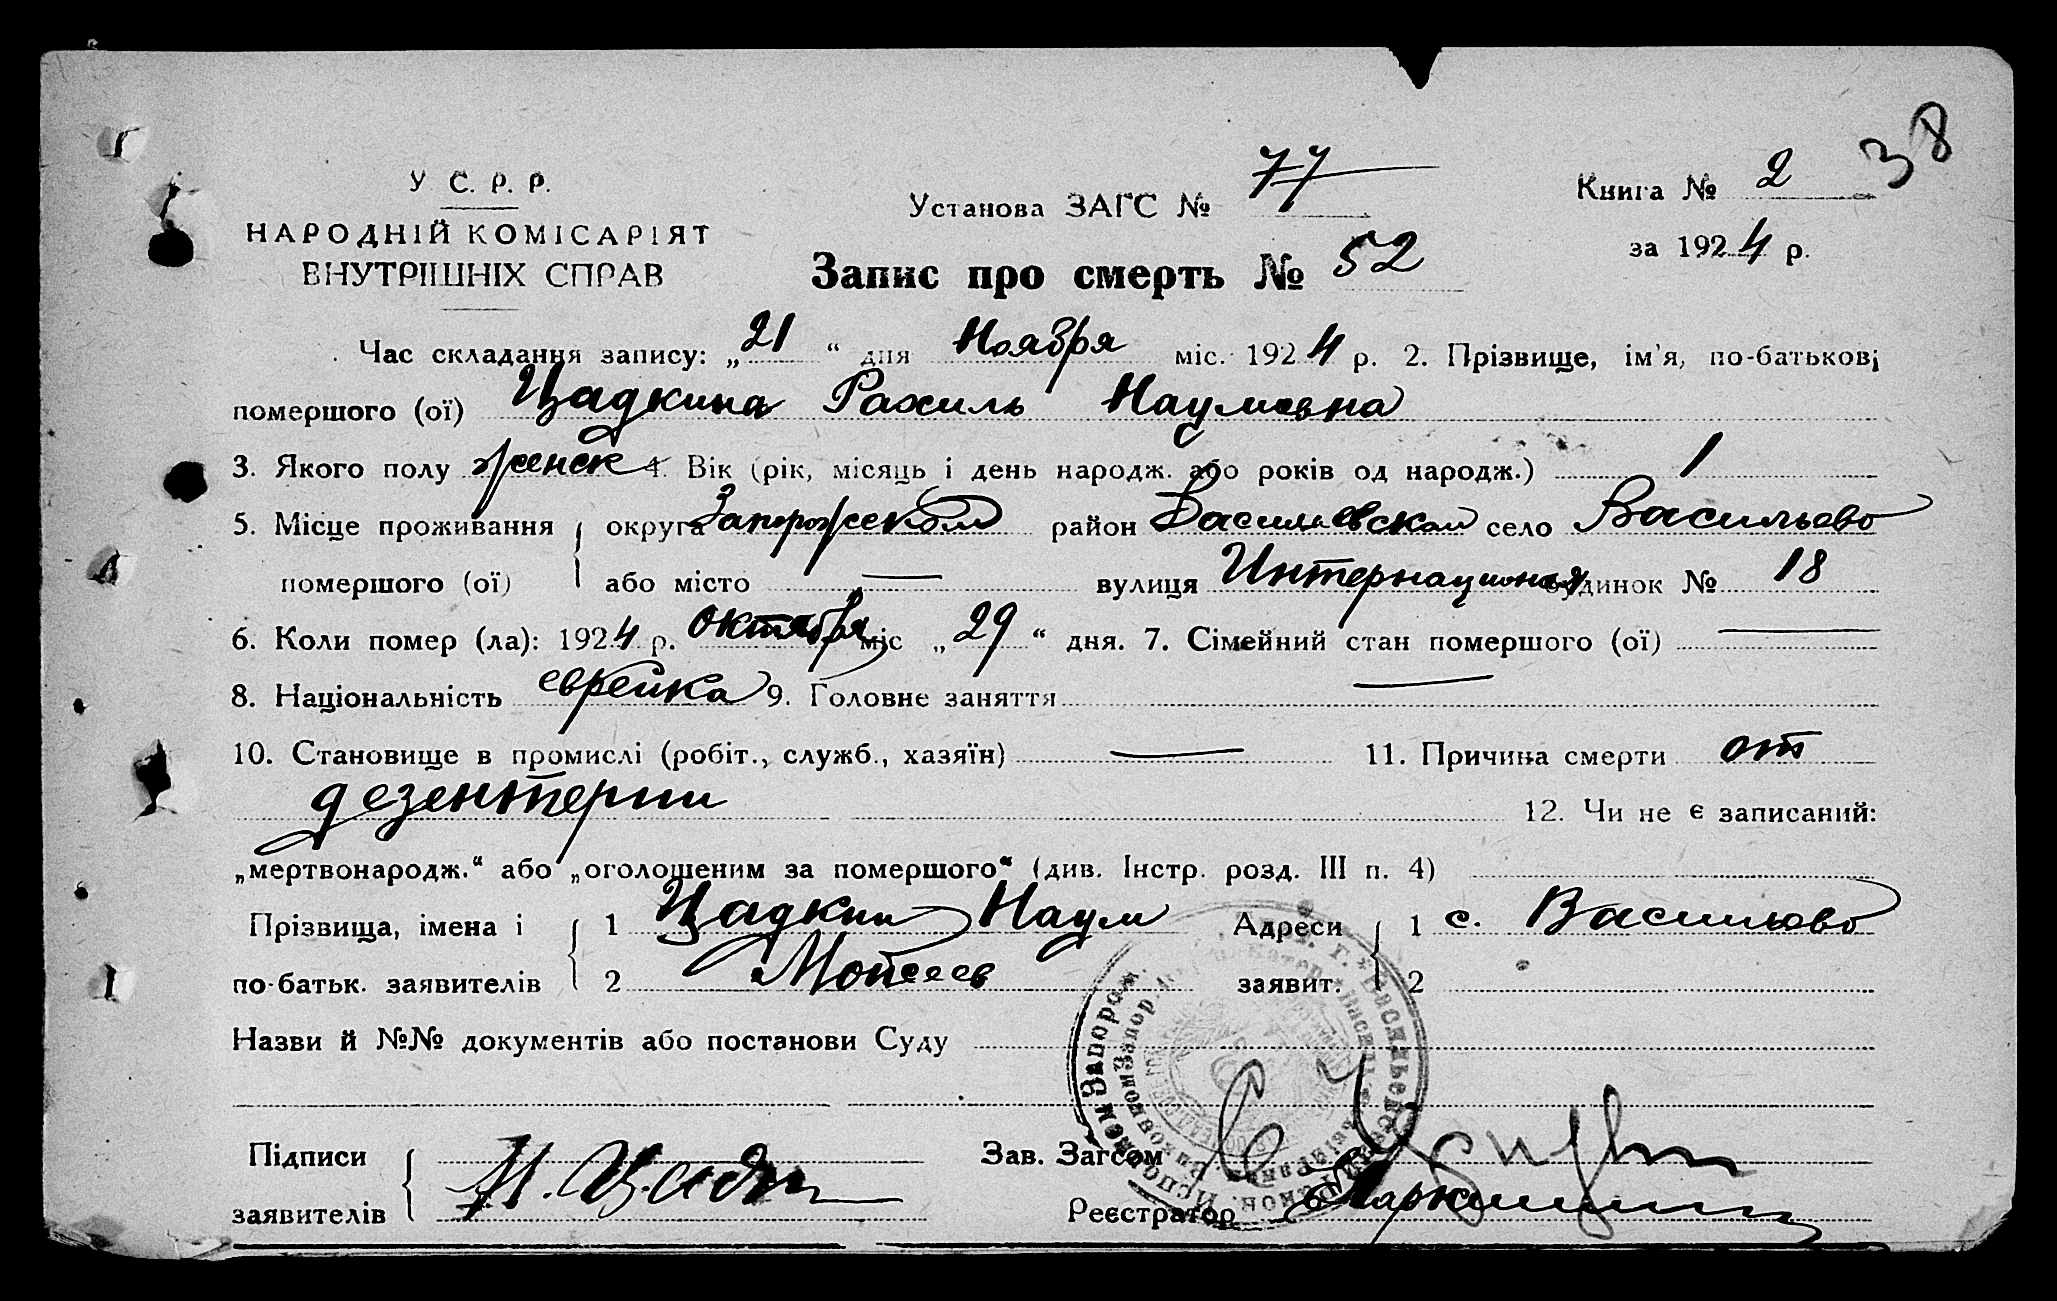 38
У С. Р. Р.
НАРОДНІЙ КОМІСАРІЯТ
ВНУТРІШНІХ СПРАВ
Установа ЗАГС № 77
Книга № 2
за 1924 р.
Запис про смерть № 52
Час складання запису: „21“ дня Ноября міс. 1924 р. 2. Прізвище, ім'я, по-батькові
помершого (ої) Цадкина Рахиль Наумовна
3. Якого полу женск 4. Вік (рік, місяць і день народж. або років од народж.) 1
5. Місце проживання { округа Запорожской район Васильевской село Васильево
помершого (ої) або місто — вулиця Интернационал будинок № 18
6. Коли помер (ла): 1924 р. октября міс „29“ дня. 7. Сімейний стан помершого (ої) —
8. Національність еврейка 9. Головне заняття —
10. Становище в промислі (робіт., служб., хазяїн) — 11. Причина смерти от
дезентерии 12. Чи не є записаний:
„мертвонародж.“ або „оголошеним за помершого“ (див. Інстр. розд. III п. 4)
Прізвища, імена і { 1 Цадкин Наум Адреси { 1 с. Васильево
по-батьк. заявителів 2 Мойсеев заявит. 2
Назви й №№ документів або постанови Суду
Підписи { Н. Цадкин Зав. Загсом
заявителів Реєстратор